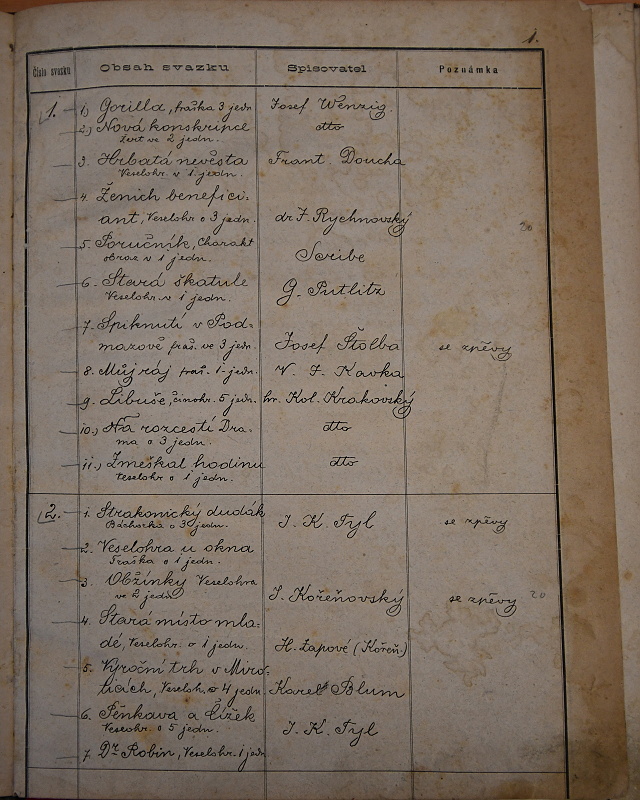 1.
Číslo svazku Obsah svazku Spisovatel Poznámka
1. 1) Gorilla, fraška 3 jedn. Josef Wenzig
2.) Nová konskripce dtto
Žert ve 2 jedn.
3. Hrbatá nevěsta Frant. Doucha
Veselohr. v 1 jedn.
4. Ženich benefici-
ant, Veselohr o 3 jedn. dr F. Rychnovský
5. Poručník, Charakt
obraz v 1 jedn. Scribe
6. Stará škatule
Veselohr. v 1 jedn. G. Putlitz
7. Spiknutí v Pod-
mazově fraš. ve 3 jedn. Josef Štolba se zpěvy
8. Můj ráj fraš. 1 jedn. V. F. Kavka
9. Libuše, činohr. 5 jedn. hr. Kol. Krakovský
10.) Na rozcestí Dra-
ma o 3 jedn. dtto
11.) Zmeškal hodinu dtto
Veselohr o 1 jedn.
2. 1. Strakonický dudák
Báchorka o 3 jedn. J. K. Tyl se zpěvy
2. Veselohra u okna
Fraška o 1 jedn.
3. Obžínky Veselohra
ve 2 jedn J. Kořeňovský se zpěvy 20
4. Stará místo mla-
dé, Veselohr. o 1 jedn. H. Žapové (Kořeň)
5. Výroční trh v Miro-
ticách, Veseloh. o 4 jedn. Karel Blum
6. Pěnkava a Čížek
Veselohr. o 5 jedn. J. K. Tyl
7. Dr. Robin, Veselohr. 1 jedn